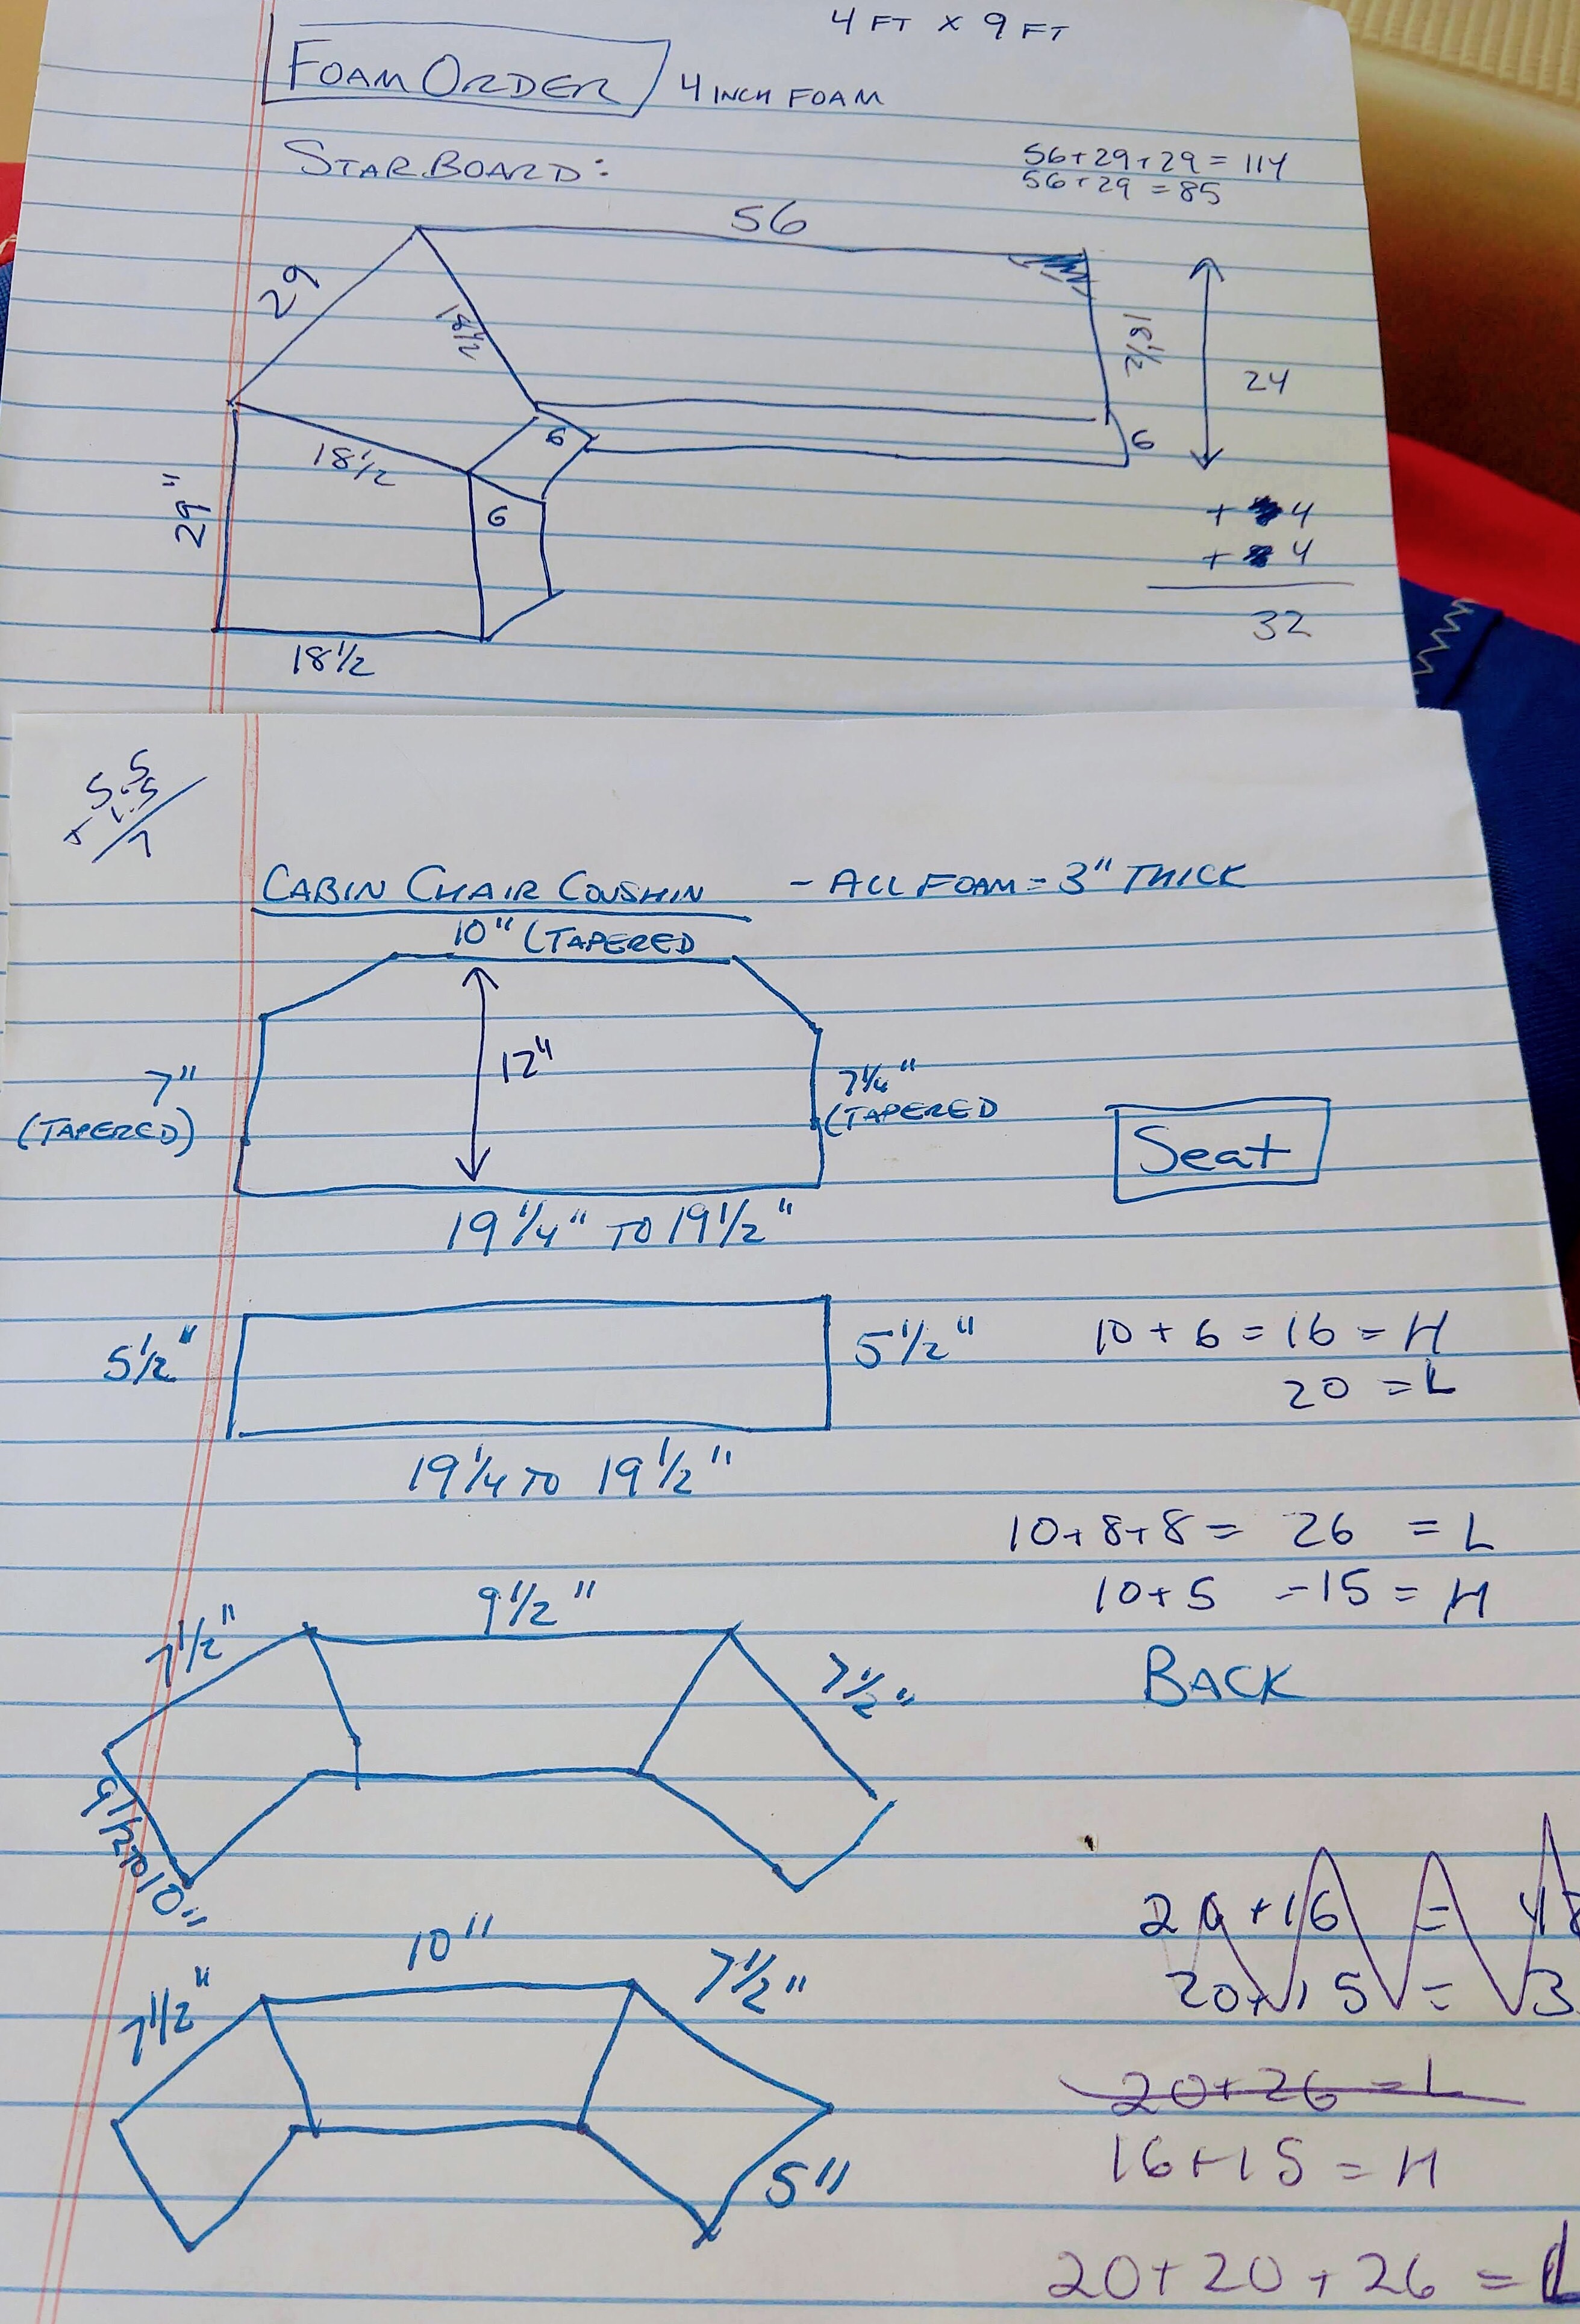 4 FT X 9 FT
FOAM ORDER
4 INCH FOAM
STARBOARD:
56+29+29 = 114
56+29 = 85
56
29
18 1/2
18 1/2
24
6
6
18 1/2
29"
6
+ 4
+ 4
32
18 1/2
5.5
+ 1.5
7
CABIN CHAIR COUSHIN - ALL FOAM = 3" THICK
10" (TAPERED
12"
7"
(TAPERED)
7 1/4"
(TAPERED
Seat
19 1/4" TO 19 1/2"
5 1/2"
5 1/2"
10 + 6 = 16 = H
20 = L
19 1/4 TO 19 1/2"
10+8+8 = 26 = L
10+5 = 15 = H
9 1/2"
7 1/2"
7 1/2"
BACK
9 1/2 TO 10"
20+15 =
10"
7 1/2"
7 1/2"
20+26 = L
16+15 = H
5"
20+20+26 = L